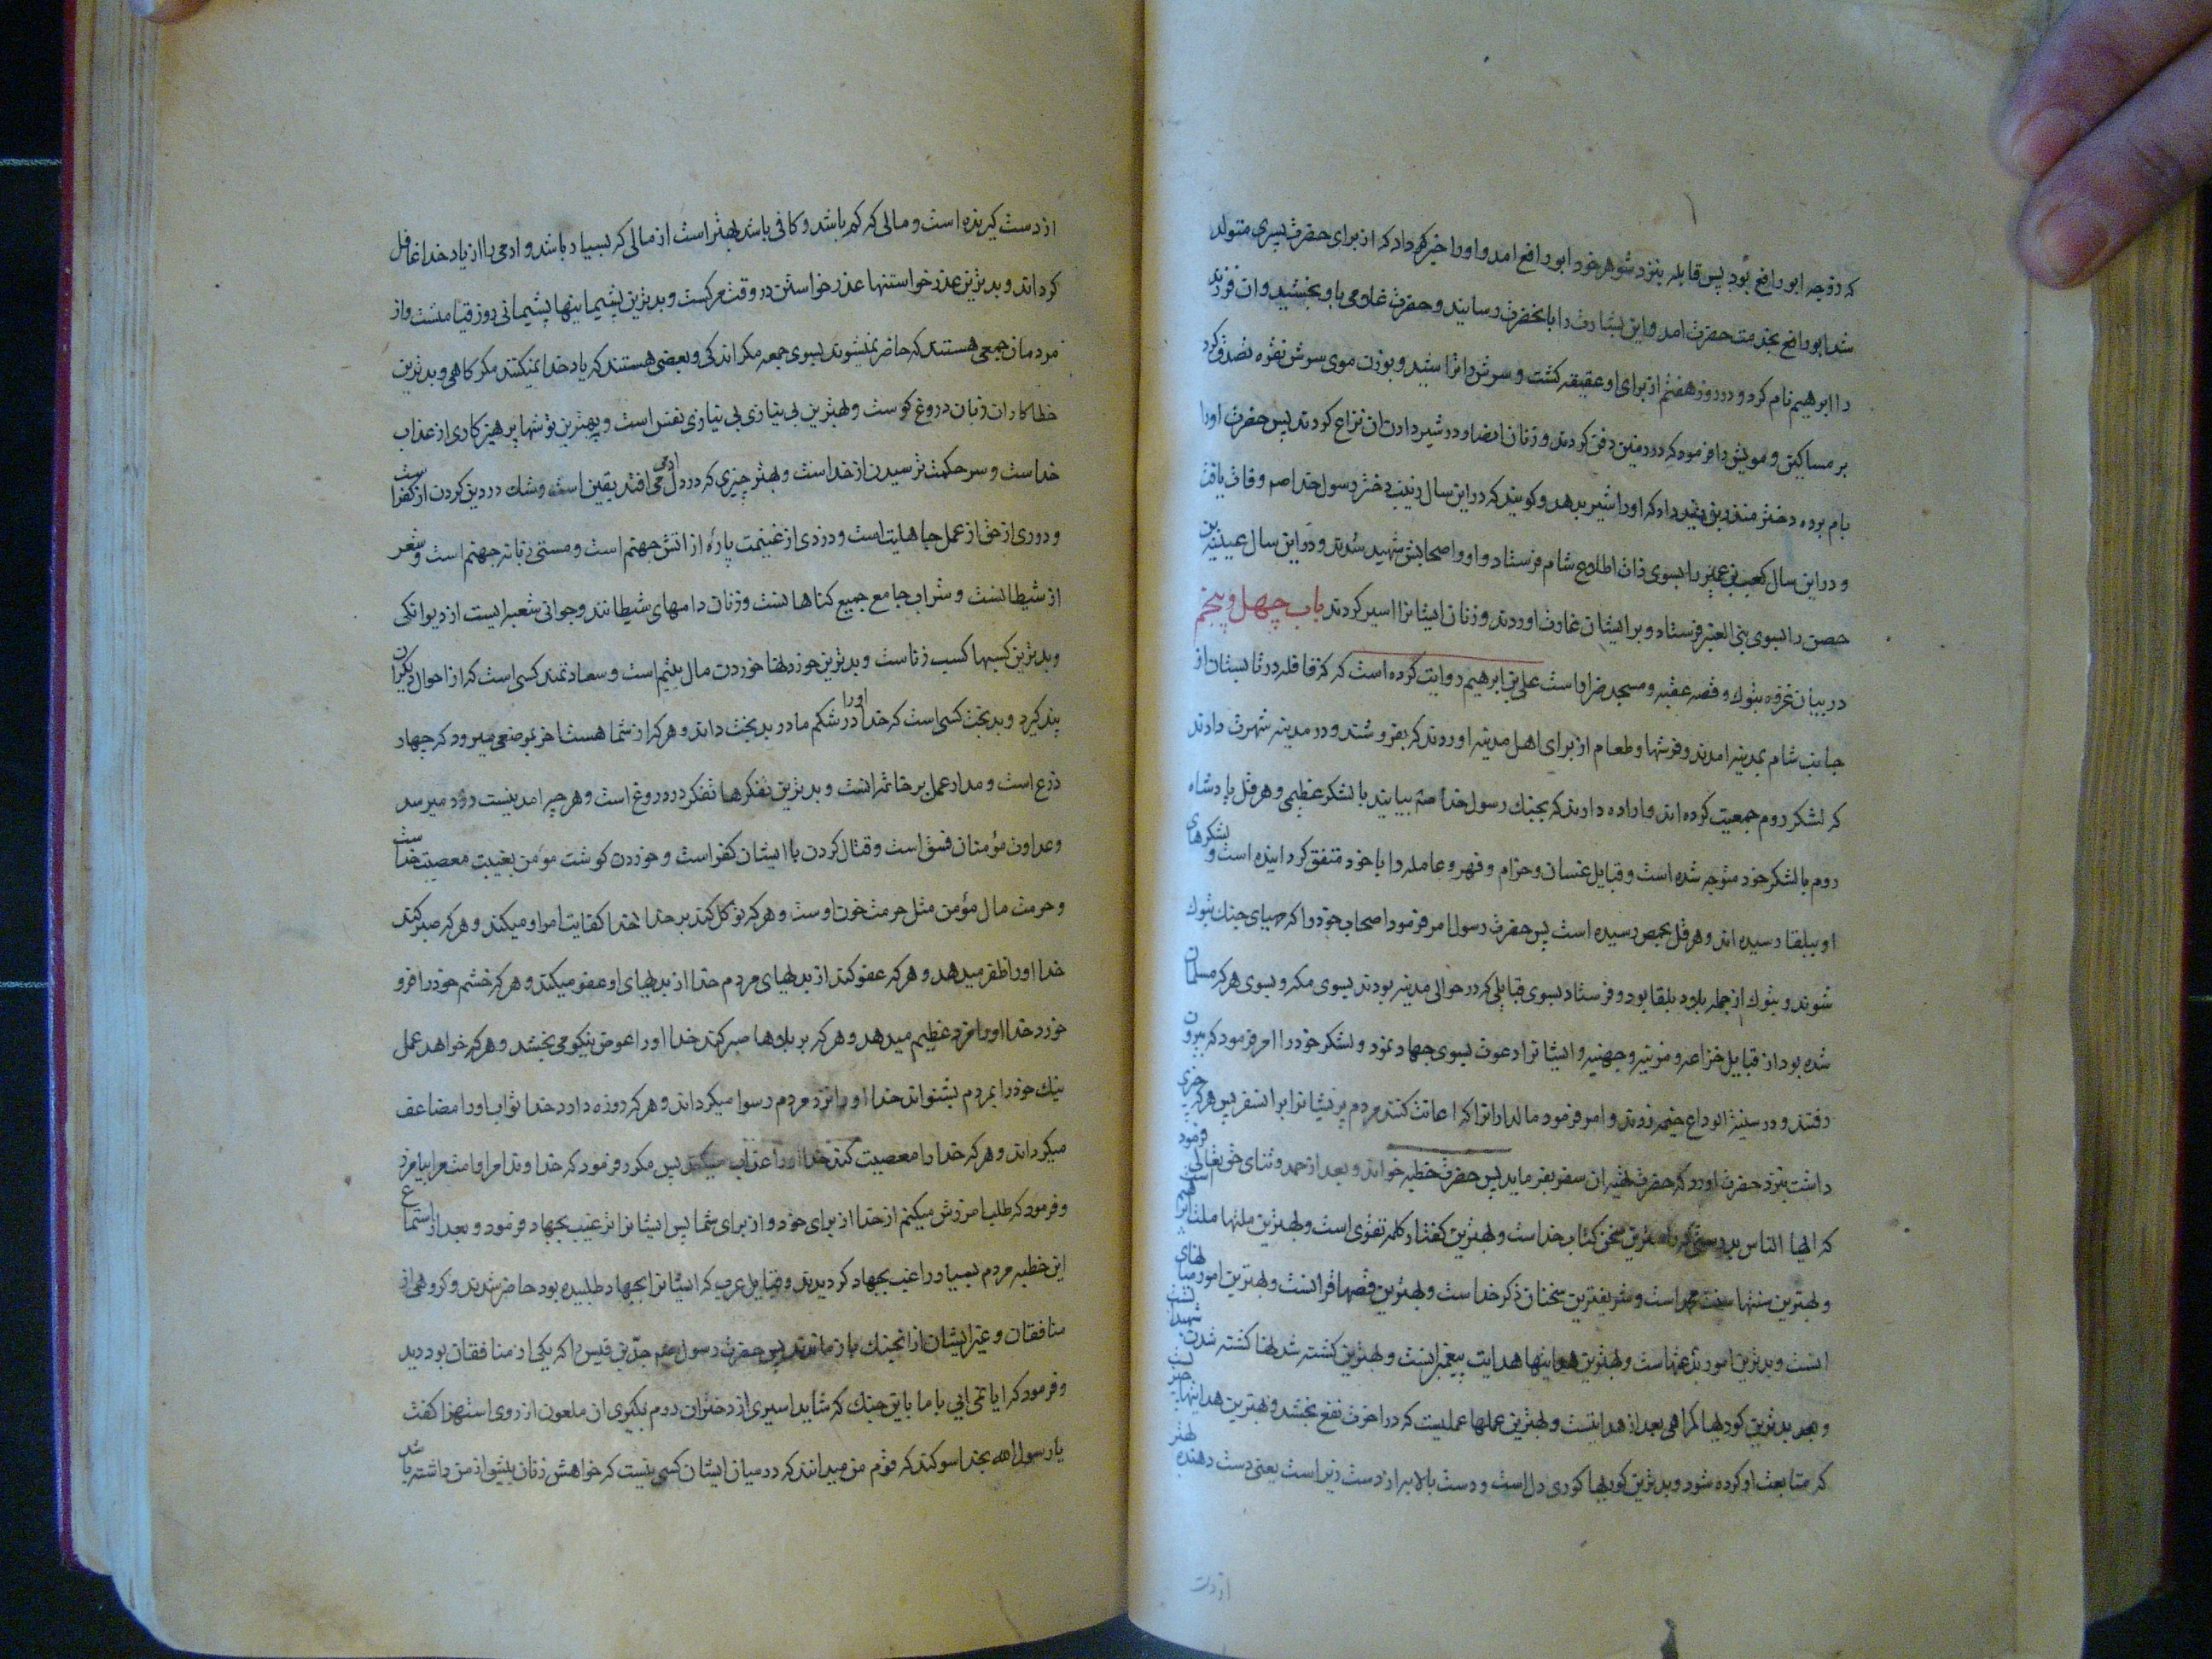 که زوجه ابو رافع بود پس قابله بنزد شوهر خود ابو رافع امد و اورا خبر کرد که از برای حضرت پسری متولد
شد ابو رافع بخدمت حضرت امد و این بشارت را بانحضرت رسانید و حضرت غلامی باو بخشید و ان فرزند
را ابرهیم نام کرد و در روز هفتم از برای او عقیقه کشت و سرش را تراشید و بوزن موی سرش نقره تصدق کرد
بر مساکین و مویش را فرمود که در زمین دفن کردند و زنان انصار در شیر دادن ان نزاع کردند پس حضرت اورا
بام برده دختر منذر بن زید داد که اورا شیر بدهد و کویند که در این سال زینب دختر رسول خدا صم وفات یافت
و در این سال کعب بن عمیر را بسوی ذات اطلاع شام فرستاد و او و اصحابش شهید شدند و در این سال عیینة بن
حصن را بسوی بنی العنبر فرستاد و بر ایشان غارت اوردند و زنان ایشانرا اسیر کردند باب چهل و پنجم
در بیان غزوه تبوک و قصه عقبه و مسجد ضرار است علی بن ابرهیم روایت کرده است که که قافله در تابستان از
جانب شام بمدینه امدند و فرشها و طعام از برای اهل مدینه اوردند که بفروشند و در مدینه شهرت دادند
که لشکر روم جمعیت کرده اند و اراده دارند که بجنک رسول خدا صم بیایند با لشکر عظیمی و هرقل پادشاه
روم با لشکر خود متوجه شده است و قبایل غسان و حزام و فهر و عامله را با خود متفق کردانیده است و لشکرهای
او ببلقا رسیده اند و هرقل بحمص رسیده است پس حضرت رسول امر فرمود اصحاب خود را که مهیای جنک تبوک
شوند و تبوک از جمله بلاد بلقا بود و فرستاد بسوی قبایلی که در حوالی مدینه بودند بسوی مکه و بسوی هر که مسلمان
شده بود از قبایل خزاعه و مزینه و جهنیه و ایشانرا دعوت بسوی جهاد نمود و لشکر خود را امر فرمود که بیرون
رفتند و در سینة الوداع خیمه زدند و امر فرمود مالدارانرا که اعانت کنند مردم پریشانرا برا انسفر پس هر که چیزی
داشت بنزد حضرت اورد که حضرت تهیه ان سفر بفرماید پس حضرت خطبه خواند و بعد از حمد و ثنای حق تعالی فرمود
که ایها الناس بدرستی که راستترین سخن کتاب خداست و بهترین کفتار کلمه تقوی است و بهترین ملتها ملت ابراهیم است
و بهترین سنتها سنت محمد است و شریفترین سخنان ذکر خداست و بهترین قصها قرانست و بهترین امور میانهای
انست و بدترین امور بدعتهاست و بهترین هدایتها هدایت پیغمبرانست و بهترین کشته شدنها کشته شدن شهیدانست
و بدترین کوریها کمراهی بعد از هدایتست و بهترین عملها عملیست که در اخرت نفع بخشد و بهترین هدایتها چیزیست
که متابعت او کرده شود و بدترین کوریها کوری دل است و دست بالا بهتر از دست زیر است یعنی دست دهنده بهتر
از دست
از دست کیرنده است و مالی که کم باشد و کافی باشد بهتر است از مالی که بسیار باشد و ادمی را از یاد خدا غافل
کرداند و بدترین عذر خواستنها عذر خواستن در وقت مرکست و بدترین پشیمانیها پشیمانی روز قیامتست و از
مردمان جمعی هستند که حاضر نمیشوند بسوی جمعه مکر اندکی و بعضی هستند که یاد خدا نمیکنند مکر کاهی و بدترین
خطاکاران زبان دروغ کوست و بهترین بی نیازی بی نیازی نفس است و بهترین توشها پرهیزکاری از عذاب
خداست و سر حکمت ترسیدن از خداست و بهتر چیزی که در دل ادمی می افتد یقین است و شک در دین کردن از کفر است
و دوری از حق از عمل جاهلیت است و دزدی از غنیمت پارۀ از اتش جهنم است و مستی زبانه جهنم است و شعر
از شیطانست و شراب جامع جمیع کناهانست و زنان دامهای شیطانند و جوانی شعبه ایست از دیوانکی
و بدترین کسبها کسب زناست و بدترین خوردنها خوردن مال یتیم است و سعادتمند کسی است که از احوال دیکران
پند کیرد و بدبخت کسی است که خدا اورا در شکم مادر بدبخت داند و هر که از شما هست اخر بموضعی میرود که چهار
ذرع است و مدار عمل بر خاتمه انست و بدترین تفکرها تفکر در دروغ است و هر چه امدنیست زود میرسد
و عداوت مؤمنان فسق است و قتال کردن با ایشان کفر است و خوردن کوشت مؤمن بغیبت معصیت خداست
و حرمت مال مؤمن مثل حرمت خون اوست و هر که توکل کند بر خدا خدا کفایت امر او میکند و هر که صبر کند
خدا اورا ظفر میدهد و هر که عفو کند از بدیهای مردم خدا از بدیهای او عفو میکند و هر که خشم خود را فرو
خورد خدا اورا مزد عظیم میدهد و هر که بر بلاها صبر کند خدا اورا عوض نیکو می بخشد و هر که خواهد عمل
نیک خود را بمردم بشنواند خدا اورا نزد مردم رسوا میکرداند و هر که روزه دارد خدا ثواب اورا مضاعف
میکرداند و هر که خدا را معصیت کند خدا اورا عذاب میکند پس مکرر فرمود که خداوندا مرا و امت مرا بیامرز
و فرمود که طلب امرزش میکنم از خدا از برای خود و از برای شما پس ایشانرا ترغیب بجهاد فرمود و بعد از استماع
این خطبه مردم بسیار راغب بجهاد کردیدند و قبایل عرب که ایشانرا بجهاد طلبیده بود حاضر شدند و کروهی از
منافقان و غیر ایشان از انجنک باز ماندند پس حضرت رسول صم جد بن قیس را که یکی از منافقان بود دید
و فرمود که ایا نمی ایی با ما باین جنک که شاید اسیری از دختران روم بکیری ان ملعون از روی استهزا کفت
یا رسول الله بخدا سوکند که قوم من میدانند که در میان ایشان کسی نیست که خواهش زنان بیش از من داشته باشد